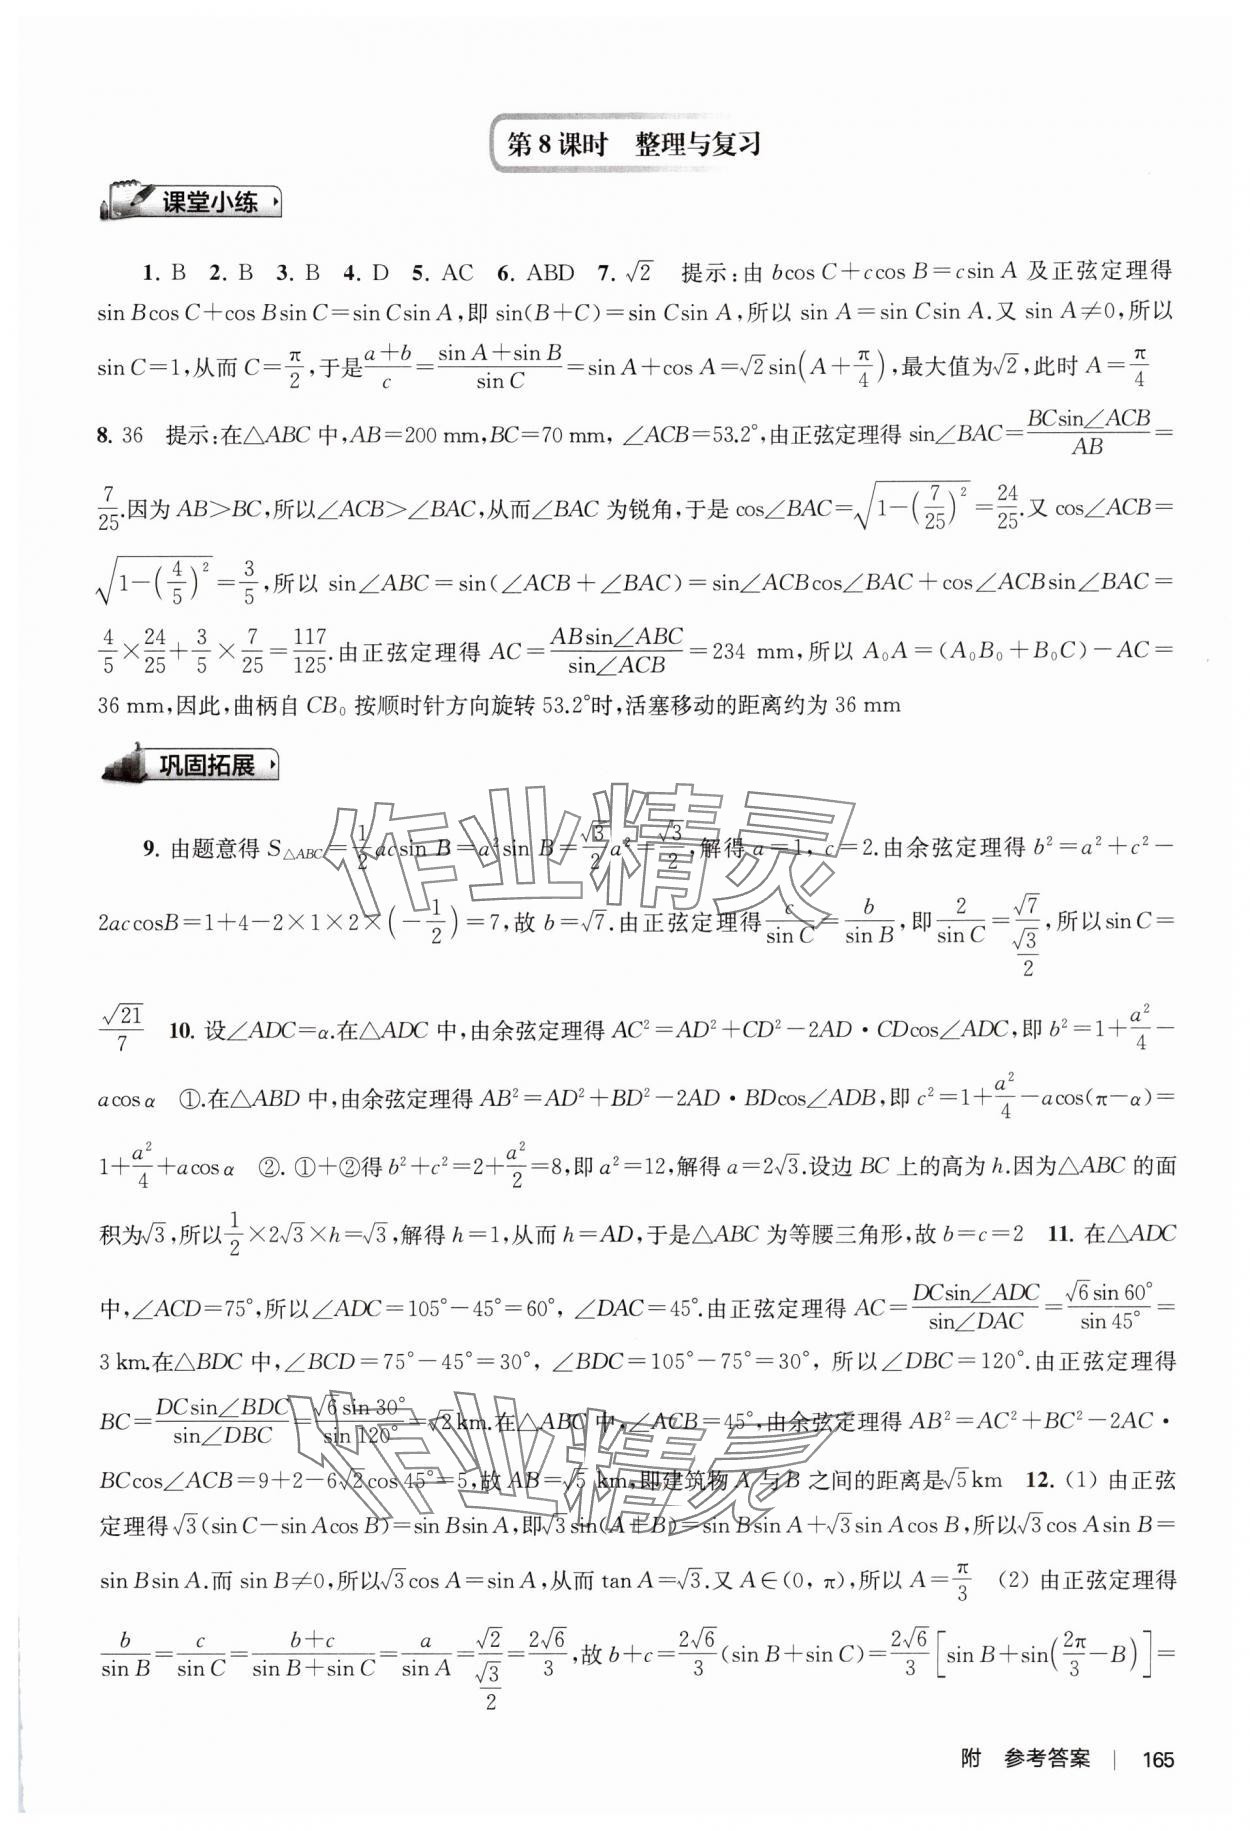 第8课时 整理与复习
课堂小练
1. B 2. B 3. B 4. D 5. AC 6. ABD 7. √2 提示:由 bcos C+ccos B=csin A 及正弦定理得
sin Bcos C+cos Bsin C=sin Csin A,即 sin(B+C)=sin Csin A,所以 sin A=sin Csin A.又 sin A≠0,所以
sin C=1,从而 C=π/2,于是(a+b)/c=(sin A+sin B)/sin C=sin A+cos A=√2sin(A+π/4),最大值为√2,此时 A=π/4
8. 36 提示:在△ABC 中,AB=200 mm,BC=70 mm,∠ACB=53.2°,由正弦定理得 sin∠BAC=BCsin∠ACB/AB=
7/25.因为 AB>BC,所以∠ACB>∠BAC,从而∠BAC 为锐角,于是 cos∠BAC=√(1-(7/25)²)=24/25.又 cos∠ACB=
√(1-(4/5)²)=3/5,所以 sin∠ABC=sin(∠ACB+∠BAC)=sin∠ACBcos∠BAC+cos∠ACBsin∠BAC=
4/5×24/25+3/5×7/25=117/125.由正弦定理得 AC=ABsin∠ABC/sin∠ACB=234 mm,所以 A₀A=(A₀B₀+B₀C)-AC=
36 mm,因此,曲柄自 CB₀ 按顺时针方向旋转 53.2°时,活塞移动的距离约为 36 mm
巩固拓展
9. 由题意得 S△ABC=1/2acsin B=a²sin B=√3/2a²=√3/2,解得 a=1, c=2.由余弦定理得 b²=a²+c²-
2accosB=1+4-2×1×2×(-1/2)=7,故 b=√7.由正弦定理得c/sin C=b/sin B,即2/sin C=√7/(√3/2),所以sin C=
√21/7 10. 设∠ADC=α.在△ADC 中,由余弦定理得 AC²=AD²+CD²-2AD·CDcos∠ADC,即 b²=1+a²/4-
acos α ①.在△ABD 中,由余弦定理得 AB²=AD²+BD²-2AD·BDcos∠ADB,即 c²=1+a²/4-acos(π-α)=
1+a²/4+acos α ②. ①+②得 b²+c²=2+a²/2=8,即 a²=12,解得 a=2√3.设边 BC 上的高为 h.因为△ABC 的面
积为√3,所以1/2×2√3×h=√3,解得 h=1,从而 h=AD,于是△ABC 为等腰三角形,故 b=c=2 11. 在△ADC
中,∠ACD=75°,所以∠ADC=105°-45°=60°,∠DAC=45°.由正弦定理得 AC=DCsin∠ADC/sin∠DAC=√6sin 60°/sin 45°=
3 km.在△BDC 中,∠BCD=75°-45°=30°,∠BDC=105°-75°=30°,所以∠DBC=120°.由正弦定理得
BC=DCsin∠BDC/sin∠DBC=√6sin 30°/sin 120°=√2km.在△ABC 中,∠ACB=45°,由余弦定理得 AB²=AC²+BC²-2AC·
BCcos∠ACB=9+2-6√2cos 45°=5,故 AB=√5 km,即建筑物 A 与 B 之间的距离是√5km 12. (1) 由正弦
定理得√3(sin C-sin Acos B)=sin Bsin A,即√3sin(A+B)=sin Bsin A+√3sin Acos B,所以√3cos Asin B=
sin Bsin A.而 sin B≠0,所以√3cos A=sin A,从而 tan A=√3.又 A∈(0, π),所以 A=π/3 (2) 由正弦定理得
b/sin B=c/sin C=(b+c)/(sin B+sin C)=a/sin A=√2/(√3/2)=2√6/3,故 b+c=2√6/3(sin B+sin C)=2√6/3[sin B+sin(2π/3-B)]=
附 参考答案 | 165
作业精灵
作业精灵